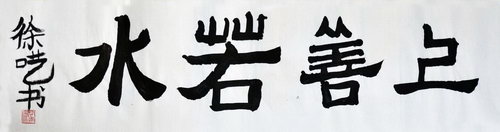 上善若水
徐㐂书